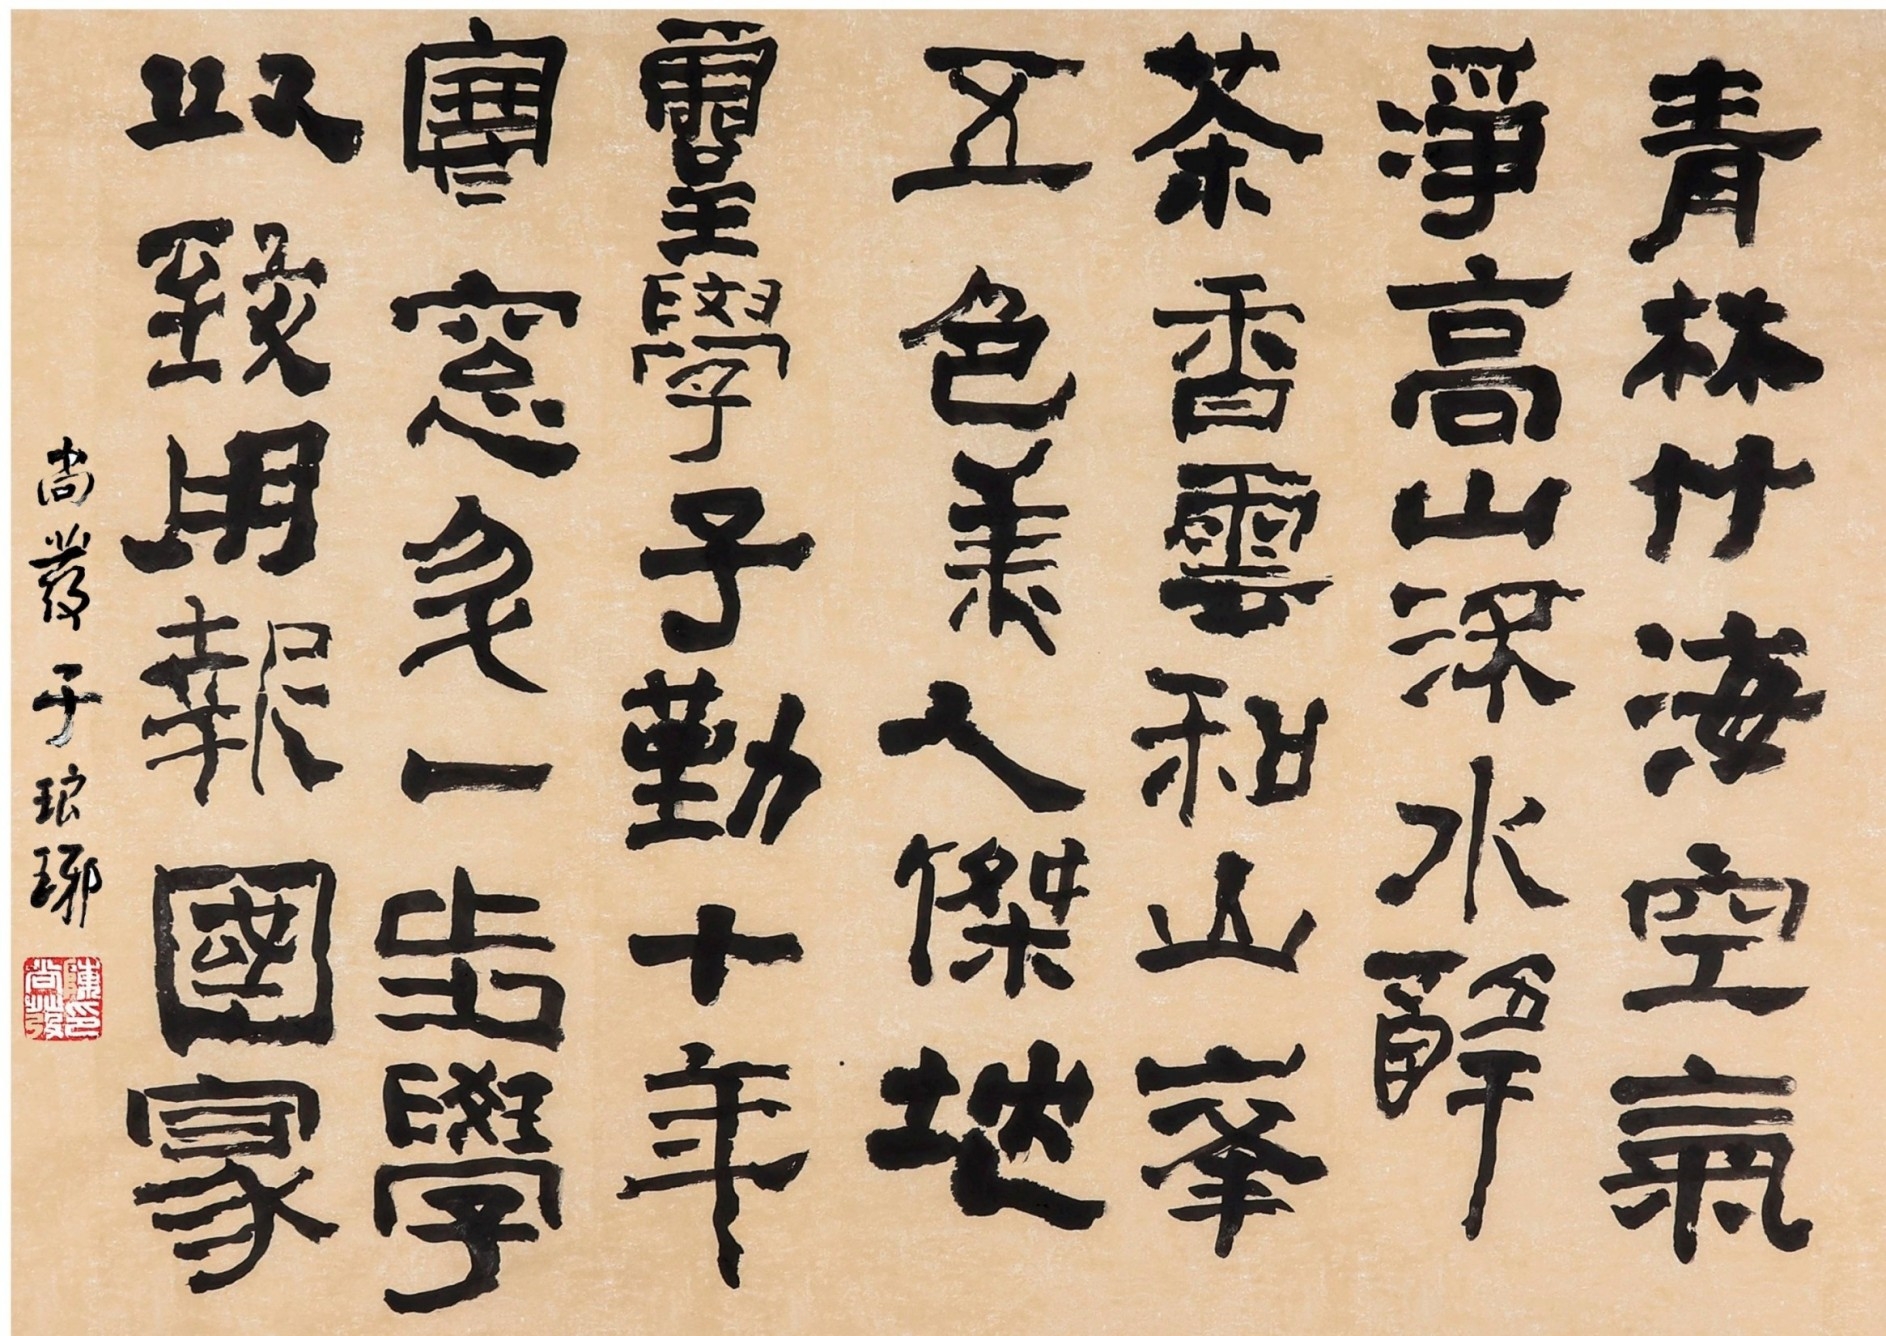 青林竹海空氣
淨高山深水解
茶香雲和山峯
五色美人傑地
靈學子勤十年
寒窓一步學
以致用報國家
尚發于琅琊
陳印尚發